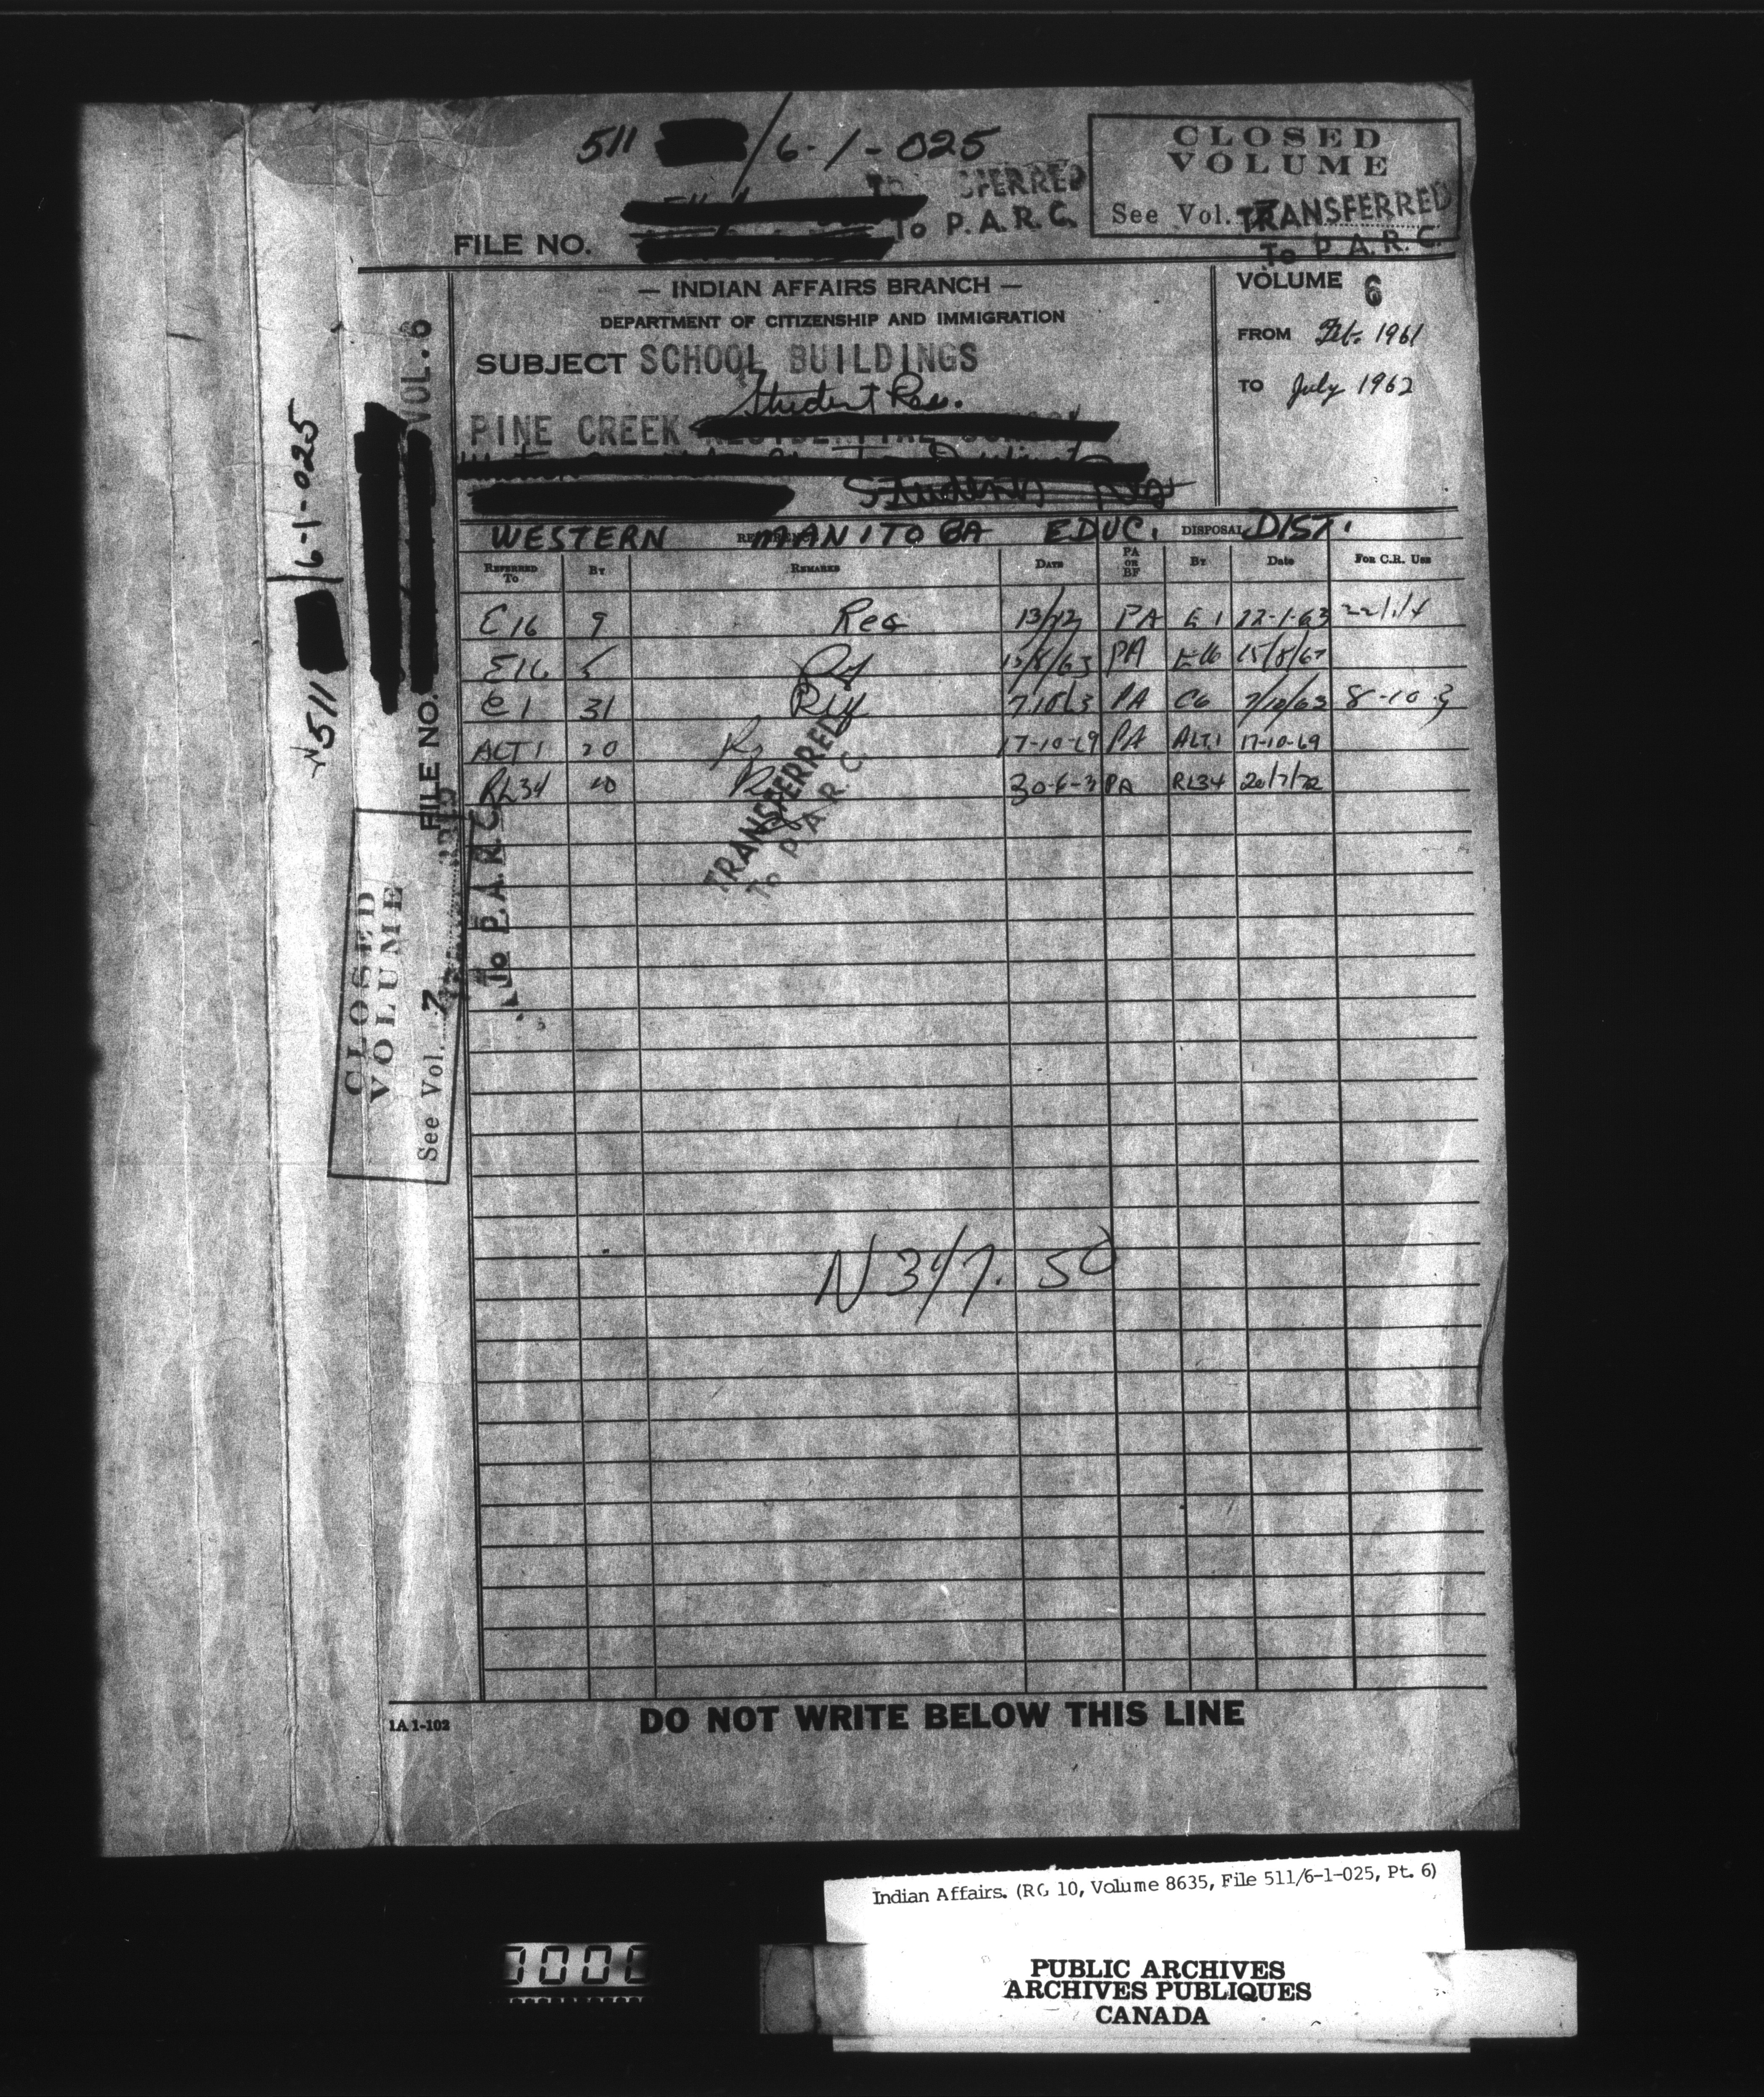 511 /6-1-025
CLOSED
VOLUME
See Vol.
TRANSFERRED
To P.A.R.C.
To P.A.R.C.
FILE NO.
— INDIAN AFFAIRS BRANCH —
DEPARTMENT OF CITIZENSHIP AND IMMIGRATION
SUBJECT SCHOOL BUILDINGS
Student Res.
PINE CREEK
VOLUME 6
FROM Feb. 1961
TO July 1962
WESTERN MANITOBA EDUC. DISPOSAL DIST.
REFERRED TO BY REMARKS DATE PA OR BF BY Date FOR C.R. USE
E16 9 Rec 13/12 PA E1 22-1-63
E16 5 PA E16
C1 31 PA C6 7/10/63 8-10-3
ALT1 20 17-10-69 PA ALT.1 17-10-69
RL34 PA RL34 20/7/72
TRANSFERRED
To P.A.R.C
N 347. 50
511 /6-1-025
FILE NO. VOL. 6
CLOSED
VOLUME
See Vol. 7
To P.A.R.C.
1A 1-102
DO NOT WRITE BELOW THIS LINE
Indian Affairs. (RG 10, Volume 8635, File 511/6-1-025, Pt. 6)
PUBLIC ARCHIVES
ARCHIVES PUBLIQUES
CANADA